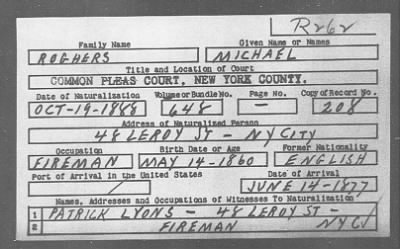 R262
Family Name Given Name or Names
ROGHERS MICHAEL
Title and Location of Court
COMMON PLEAS COURT, NEW YORK COUNTY.
Date of Naturalization Volume or Bundle No. Page No. Copy of Record No.
OCT-19-1888 648 — 208
Address of Naturalized Person
48 LEROY ST - NY CITY
Occupation Birth Date or Age Former Nationality
FIREMAN MAY 14-1860 ENGLISH
Port of Arrival in the United States Date of Arrival
/ JUNE 14-1877
Names, Addresses and Occupations of Witnesses To Naturalization
1 PATRICK LYONS - 48 LEROY ST -
2 FIREMAN NYC